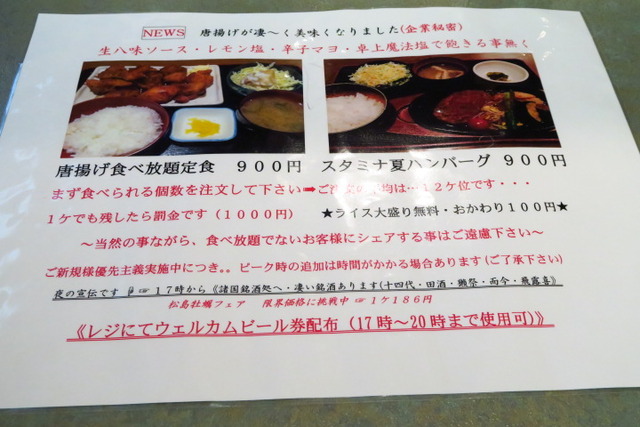 NEWS 唐揚げが凄～く美味くなりました(企業秘密)
生八味ソース・レモン塩・辛子マヨ・卓上魔法塩で飽きる事無く
唐揚げ食べ放題定食 ９００円 スタミナ夏ハンバーグ ９００円
まず食べられる個数を注文して下さい➡ご注文の平均は…１２ケ位です・・・
１ケでも残したら罰金です（１０００円） ★ライス大盛り無料・おかわり１００円★
～当然の事ながら、食べ放題でないお客様にシェアする事はご遠慮下さい～
ご新規様優先主義実施中につき。。ピーク時の追加は時間がかかる場合あります(ご了承下さい)
夜の宣伝です ☞ １７時から《諸国銘酒処へ・凄い銘酒あります(十四代・田酒・獺祭・而今・飛露喜)
松島牡蠣フェア 限界価格に挑戦中 ☞１ケ１８６円
《レジにてウェルカムビール券配布（17時～20時まで使用可）》